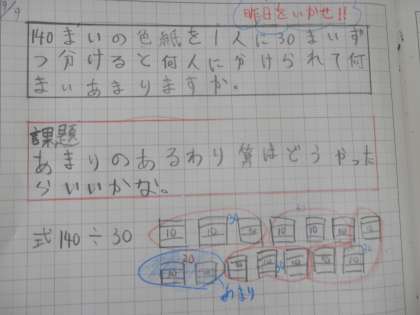 9/9
昨日をいかせ!!
140まいの色紙を1人に30まいず
つ分けると何人に分けられて何
まいあまりますか。
課題
あまりのあるわり算はどうやった
らいいかな。
式140÷30
10 10 10 10 10 10 10
10 10 10 10 10 10 10
20
あまり